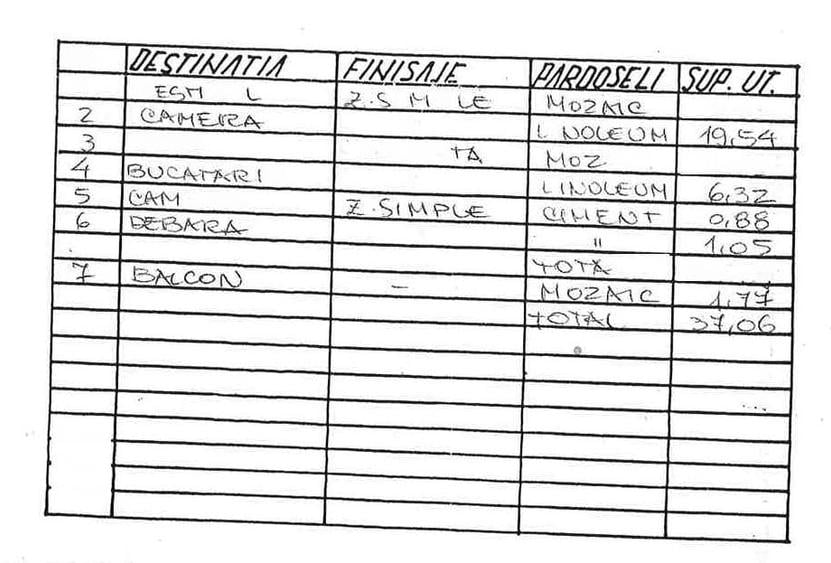 DESTINATIA FINISAJE PARDOSELI SUP. UT.
MOZAIC
2 CAMERA LINOLEUM 19,54
3 MOZ
4 BUCATARI LINOLEUM 6,32
5 CAM Z.SIMPLE CIMENT 0,88
6 DEBARA " 1,05
TOTA
7 BALCON - MOZAIC 1,77
TOTAL 37,06